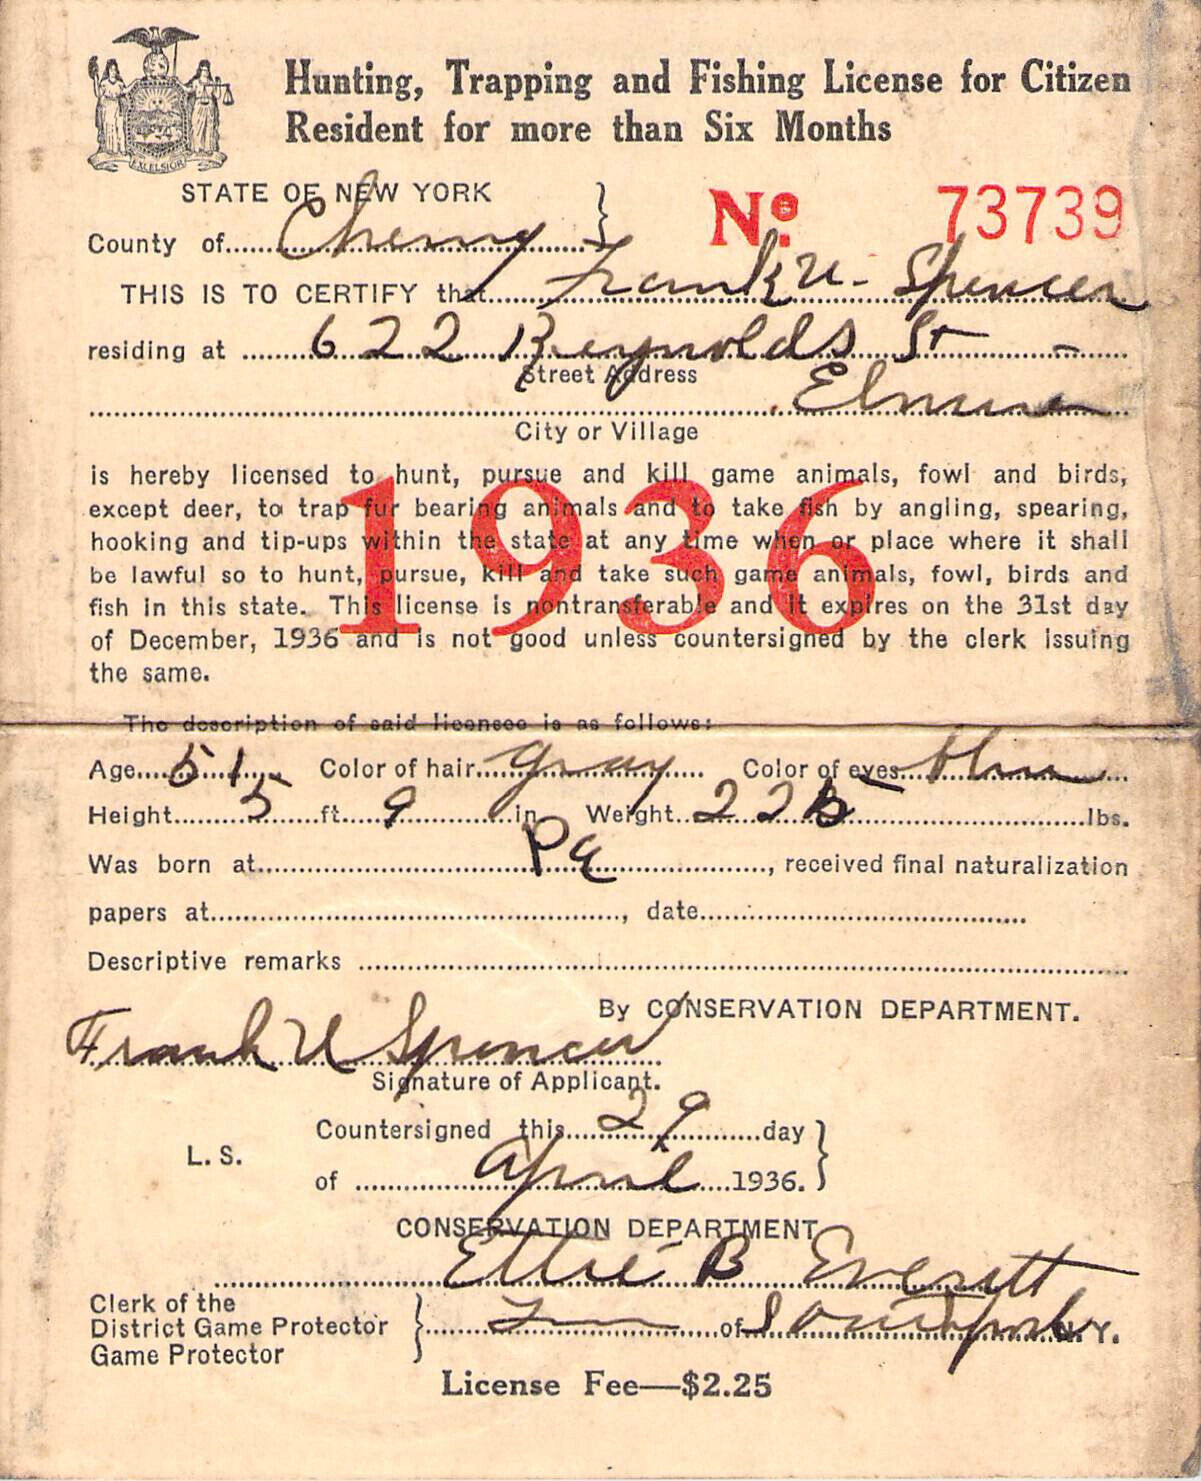 EXCELSIOR
Hunting, Trapping and Fishing License for Citizen
Resident for more than Six Months
STATE OF NEW YORK }
County of Chemung No. 73739
THIS IS TO CERTIFY that Frank U. Spencer
residing at 622 Reynolds St -
Street Address
Elmira
City or Village
is hereby licensed to hunt, pursue and kill game animals, fowl and birds,
except deer, to trap fur bearing animals and to take fish by angling, spearing,
hooking and tip-ups within the state at any time when or place where it shall
be lawful so to hunt, pursue, kill and take such game animals, fowl, birds and
fish in this state. This license is nontransferable and it expires on the 31st day
of December, 1936 and is not good unless countersigned by the clerk issuing
the same.
1936
The description of said licensee is as follows:
Age 51 Color of hair gray Color of eyes blue
Height 5 ft. 9 in. Weight 225 lbs.
Was born at Pa, received final naturalization
papers at, date
Descriptive remarks
By CONSERVATION DEPARTMENT.
Frank U Spencer
Signature of Applicant.
Countersigned this 29 day }
L. S.
of April 1936.
CONSERVATION DEPARTMENT
Ettie B Everett
Clerk of the
District Game Protector } of Southport N.Y.
Game Protector
License Fee—$2.25